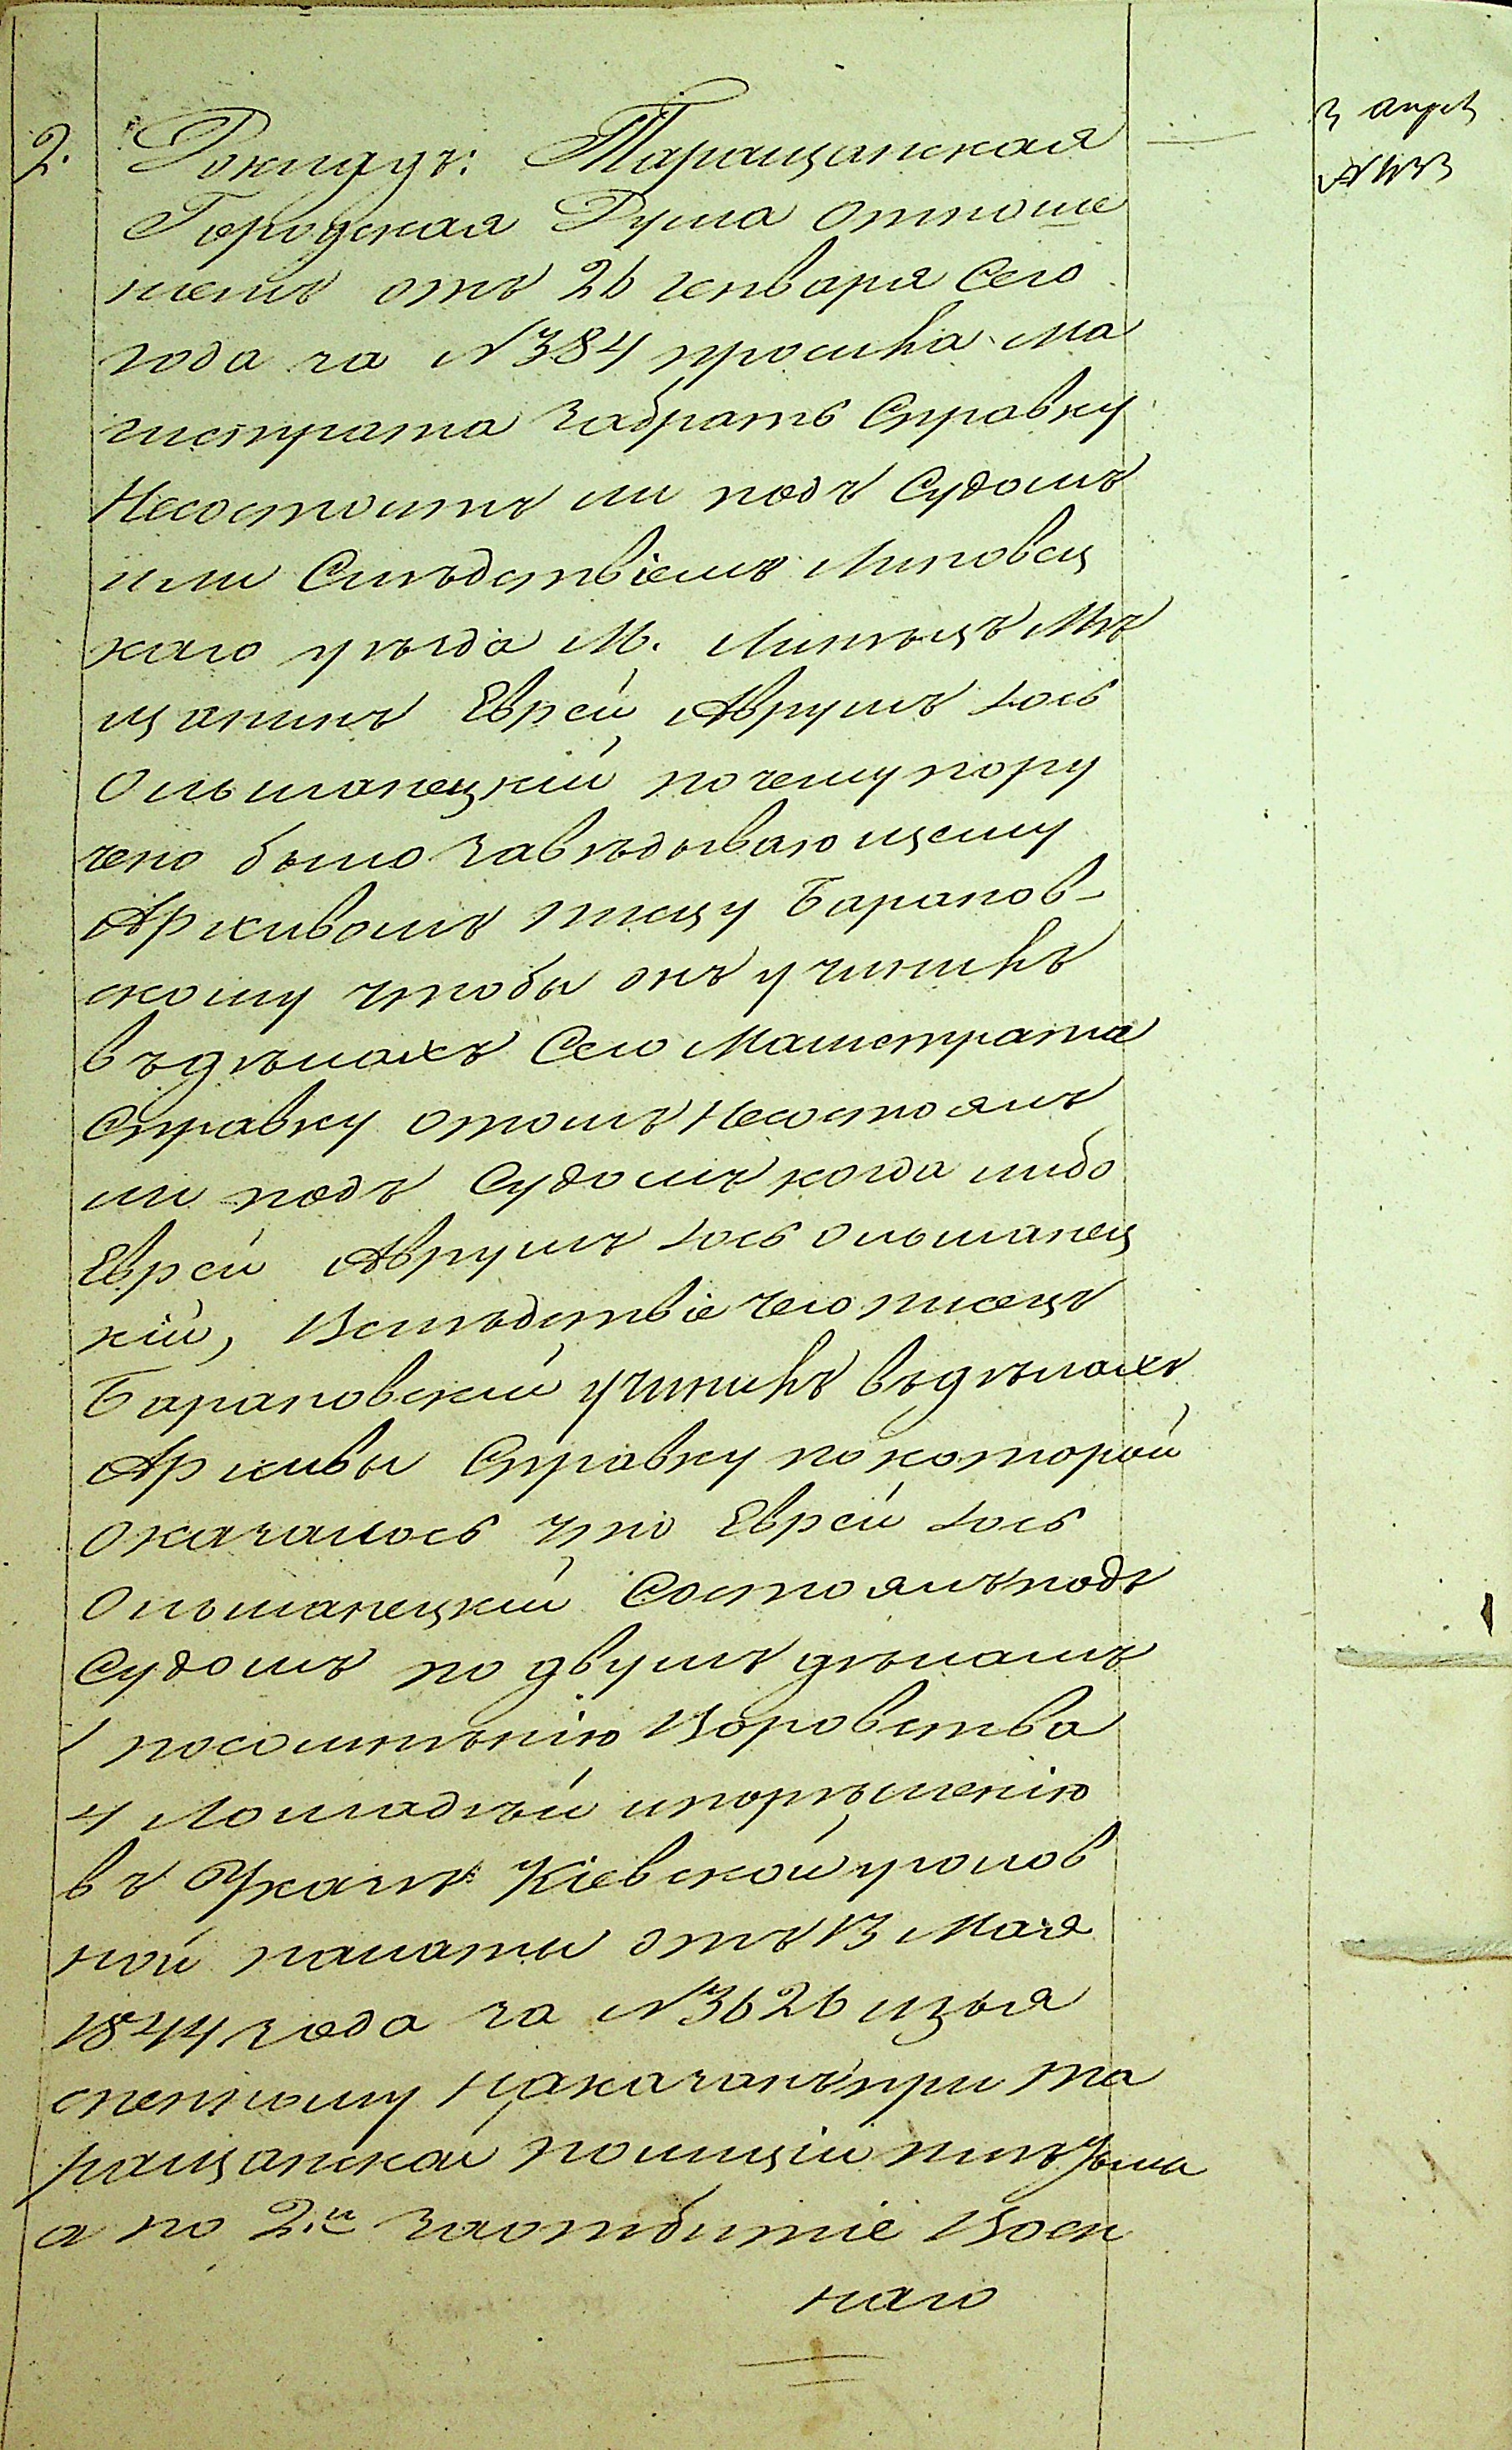 2. Докладъ: Таращанская
Городская Дума отноше
ніемъ отъ 26 генваря Сего
года за №384 просила Ма
гистрата забрать Справку
Несостоитъ ли подъ Судомъ
или Слѣдствіемъ Липовец
каго уѣзда М. Линецъ Мѣ
щанинъ Еврей Аврумъ Іось
Ольшанецкій почему пору
чено было завѣдывающему
Архивомъ писцу Баранов-
скому чтобы онъ учинилъ
въдѣлахъ Сего Магистрата
Справку отомъ Несостоялъ
ли подъ Судомъ когда либо
Еврей Аврумъ Іось Ольшанец
кій, Вслѣдствіе чего писецъ
Барановскій учинилъ въдѣлахъ
Архивы Справку покоторой
оказалось что Еврей Іось
Ольшанецкій Состоялъ подъ
Судомъ по двумъ дѣламъ
1 посомнѣнію Воровства
4 Лошадѣй ипорѣшенію
въ Указѣ Кіевской уголов
ной палаты отъ 13 Мая
1844 года за №3626 изъя
сненному Наказанъ при Та
ращанской полиціи плѣтьма
а по 2й заотбитіе Воен
наго
3 апрел